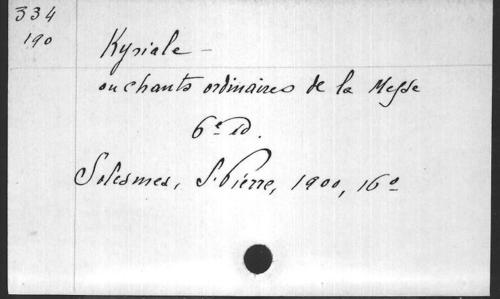 334
190
Kyriale -
ou chants ordinaires de la Messe
6e éd.
Solesmes, S. Pierre, 1900, 16°